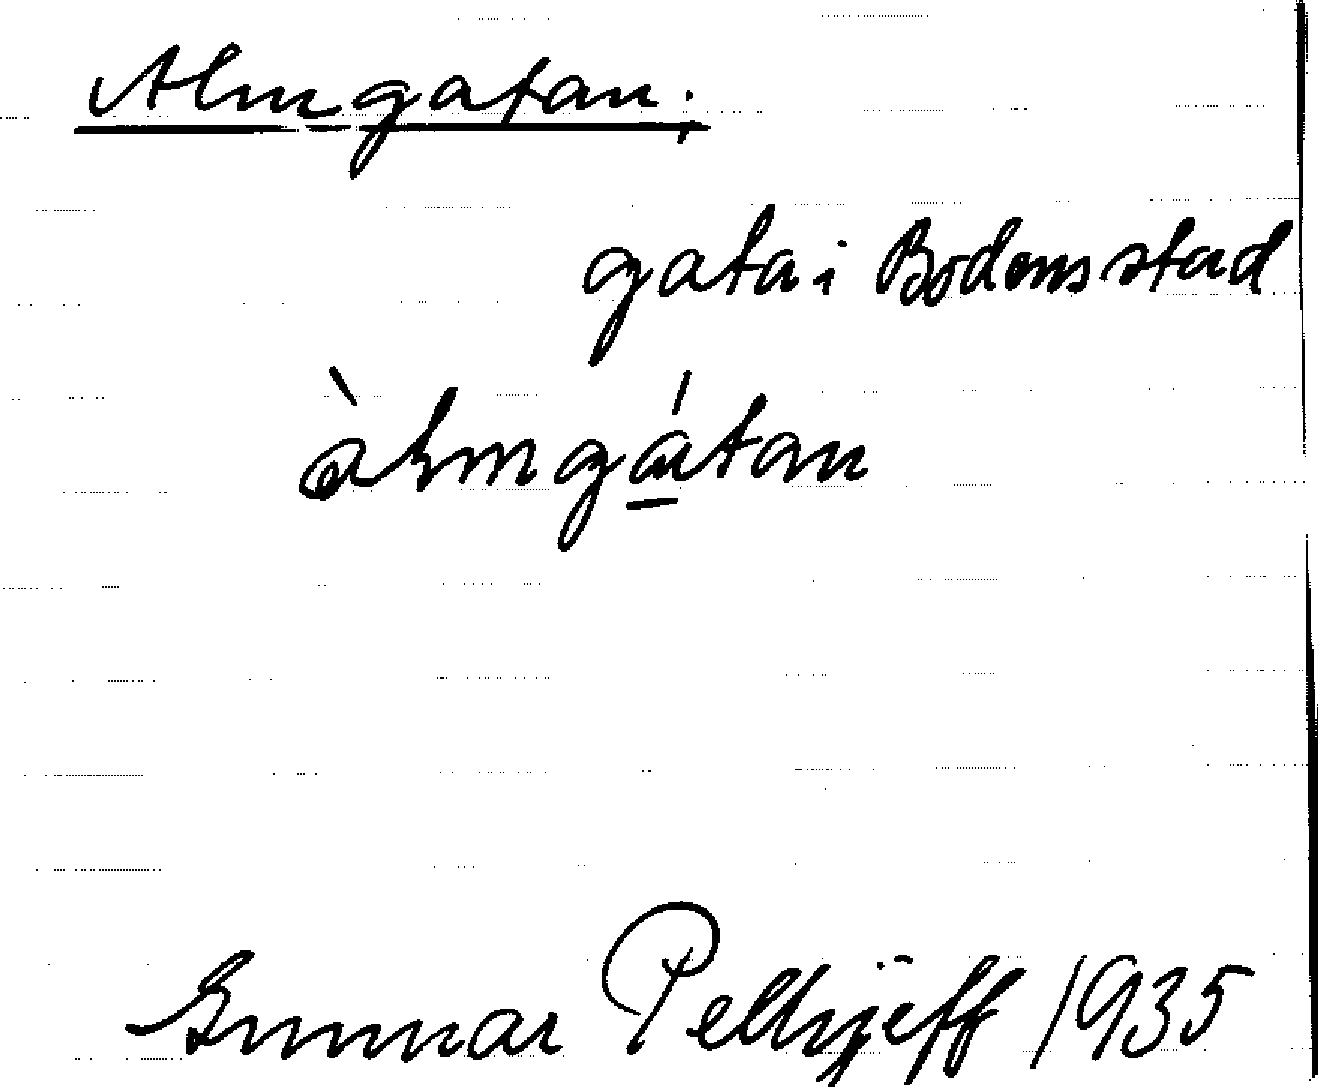 Almgatan.
gata i Bodens stad
àlmgátan
Gunnar Pellijeff 1935